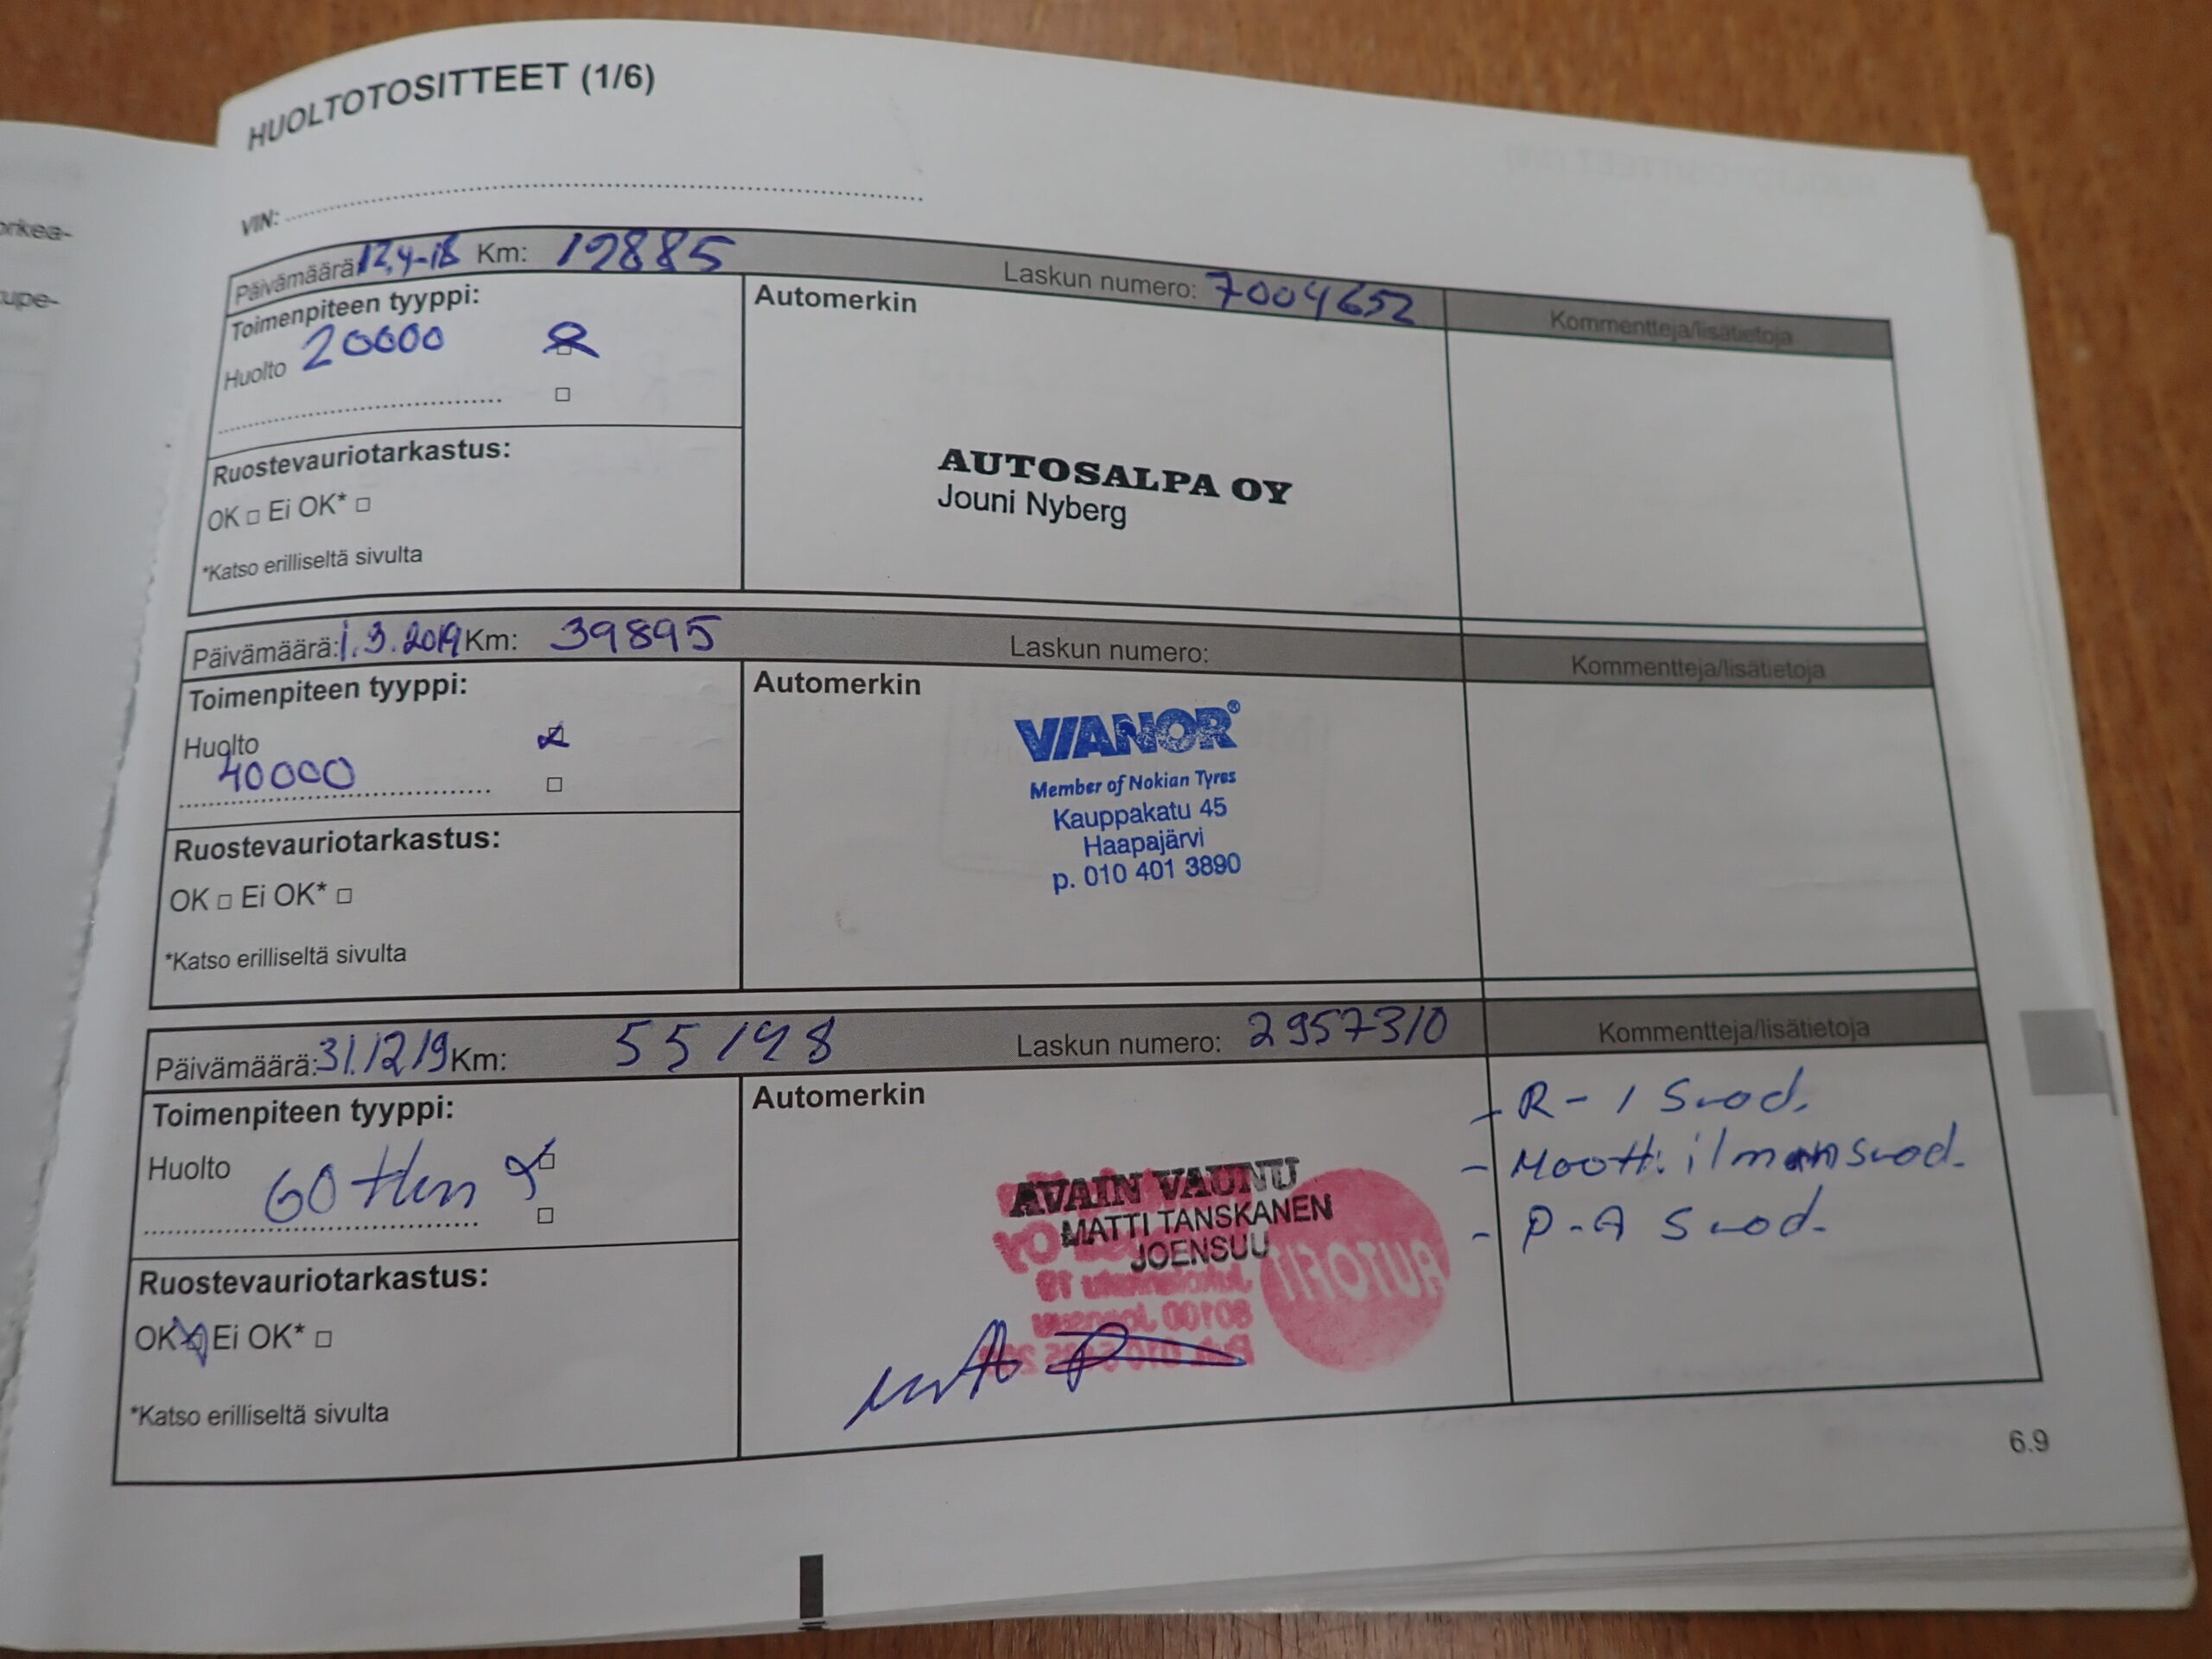 HUOLTOTOSITTEET (1/6)
VIN:
Päivämäärä: 12.4-18 Km: 19885 Laskun numero: 7004652 Kommentteja/lisätietoja
Toimenpiteen tyyppi:
Huolto 20000
Automerkin
Ruostevauriotarkastus:
OK □ Ei OK* □
*Katso erilliseltä sivulta
AUTOSALPA OY
Jouni Nyberg
Päivämäärä: 1.3.2019 Km: 39895 Laskun numero: Kommentteja/lisätietoja
Toimenpiteen tyyppi:
Huolto
40000
Automerkin
Ruostevauriotarkastus:
OK □ Ei OK* □
*Katso erilliseltä sivulta
VIANOR®
Member of Nokian Tyres
Kauppakatu 45
Haapajärvi
p. 010 401 3890
Päivämäärä: 31.12.19 Km: 55148 Laskun numero: 2957310 Kommentteja/lisätietoja
Toimenpiteen tyyppi:
Huolto 60 tkm
Automerkin
Ruostevauriotarkastus:
OK Ei OK* □
*Katso erilliseltä sivulta
AVAIN VAUNU
MATTI TANSKANEN
JOENSUU
AUTOFIT
80100 Joensuu
- R-1 Suod.
- Moott. ilman suod.
- P-A Suod.
6.9